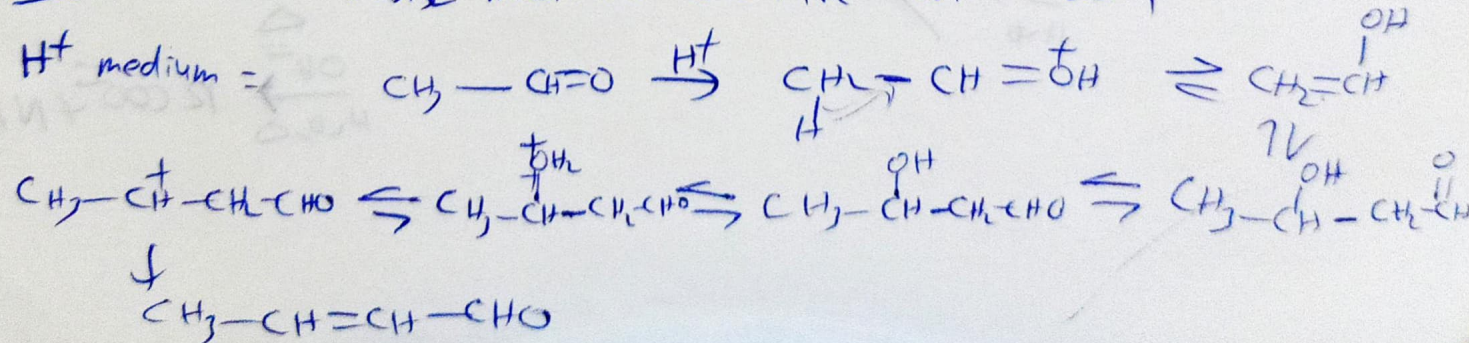 H⁺ medium = CH₃ — CH=O —H⁺→ CH₂ — CH = ⁺OH ⇌ CH₂=CH
OH
H
CH₃—CH⁺—CH₂—CHO ⇌ CH₃—CH—CH₂—CHO ⇌ CH₃—CH—CH₂—CHO ⇌ CH₃—CH—CH₂—CH
⁺OH₂ OH OH O
↓
CH₃—CH=CH—CHO